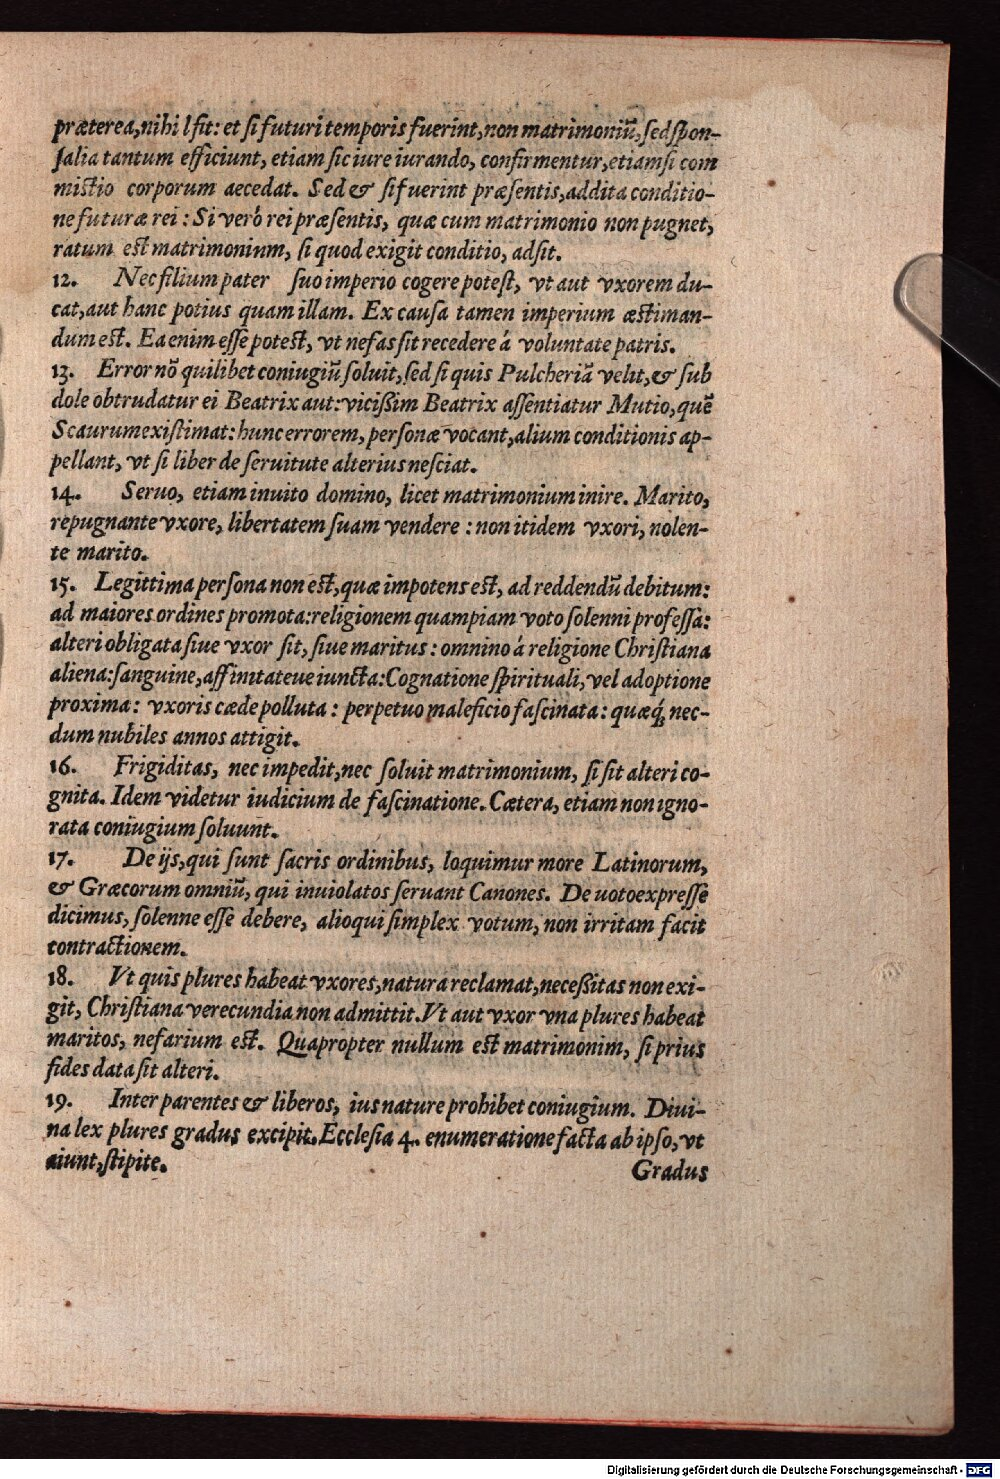 præterea, nihi lfit: et ſi futuri temporis fuerint, non matrimoniũ, ſed ſpon-
ſalia tantum efficiunt, etiam ſic iure iurando, confirmentur, etiamſi com
mictio corporum aecedat. Sed & ſi fuerint præſentis, addita conditio-
ne futuræ rei: Si verò rei præſentis, quæ cum matrimonio non pugnet,
ratum eſt matrimoninm, ſi quod exigit conditio, adſit.
12. Nec filium pater ſuo imperio cogere poteſt, vt aut vxorem du-
cat, aut hanc potius quam illam. Ex cauſa tamen imperium æſtiman-
dum eſt. Ea enim eſſe poteſt, vt nefas ſit recedere á voluntate patris.
13. Error nõ quilibet coniugiũ ſoluit, ſed ſi quis Pulcheriã velit, & ſub
dole obtrudatur ei Beatrix aut: viciſſim Beatrix aſſentiatur Mutio, quẽ
Scaurum exiſtimat: hunc errorem, perſonæ vocant, alium conditionis ap-
pellant, vt ſi liber de ſeruitute alterius neſciat.
14. Seruo, etiam inuito domino, licet matrimonium inire. Marito,
repugnante vxore, libertatem ſuam vendere: non itidem vxori, nolen-
te marito.
15. Legittima perſona non eſt, quæ impotens eſt, ad reddendũ debitum:
ad maiores ordines promota: religionem quampiam voto ſolenni profeſſa:
alteri obligata ſiue vxor ſit, ſiue maritus: omnino á religione Chriſtiana
aliena: ſanguine, affinitateue iuncta: Cognatione ſpirituali, vel adoptione
proxima: vxoris cæde polluta: perpetuo maleficio faſcinata: quæq́; nec-
dum nubiles annos attigit.
16. Frigiditas, nec impedit, nec ſoluit matrimonium, ſi ſit alteri co-
gnita. Idem videtur iudicium de faſcinatione. Cætera, etiam non igno-
rata coniugium ſoluunt.
17. De ijs, qui ſunt ſacris ordinibus, loquimur more Latinorum,
& Græcorum omniũ, qui inuiolatos ſeruant Canones. De uoto expreſſe
dicimus, ſolenne eſſe debere, alioqui ſimplex votum, non irritam facit
contractionem.
18. Vt quis plures habeat vxores, natura reclamat, neceſſitas non exi-
git, Chriſtiana verecundia non admittit. Vt aut vxor vna plures habeat
maritos, nefarium eſt. Quapropter nullum eſt matrimonim, ſi prius
fides data ſit alteri.
19. Inter parentes & liberos, ius nature prohibet coniugium. Diui-
na lex plures gradus excipit. Eccleſia 4. enumeratione facta ab ipſo, vt
aiunt, ſtipite.
Gradus
Digitalisierung gefördert durch die Deutsche Forschungsgemeinschaft - DFG